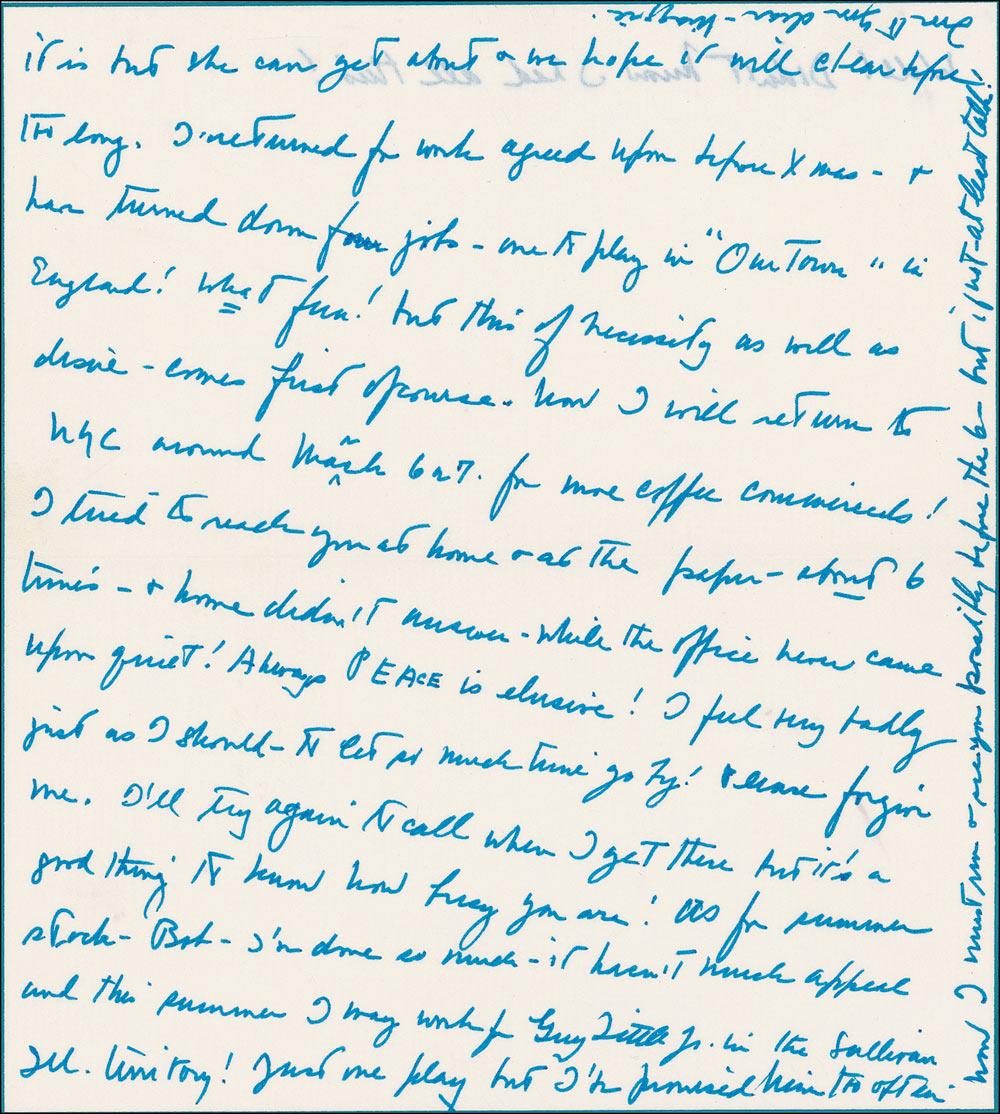 it is but she can get about & we hope it will clear before
too long. I returned for work agreed upon before Xmas - &
have turned down four jobs - one to play in "Our Town" in
England! What fun! but this of necessity as well as
desire - comes first ofcourse. Now I will return to
NYC around March 6 or 7. for more coffee commercials!
I tried to reach you at home & at the paper - about 6
times - & home didn't answer - while the office never came
upon quiet! Always PEACE is elusive! I feel very badly
just as I should - to let so much time go by! Please forgive
me. I'll try again to call when I get there but it's a
good thing to know how busy you are! As for summer
stock - Bob - I've done so much - it hasn't much appeal
and this summer I may work for Guy Little Jr. in the Sullivan
Ill. territory! Just one play but I've promised him too often -
now I must run & see you possibly before the 6 - but if not - at least talk!
Love to you dear - Margaret.